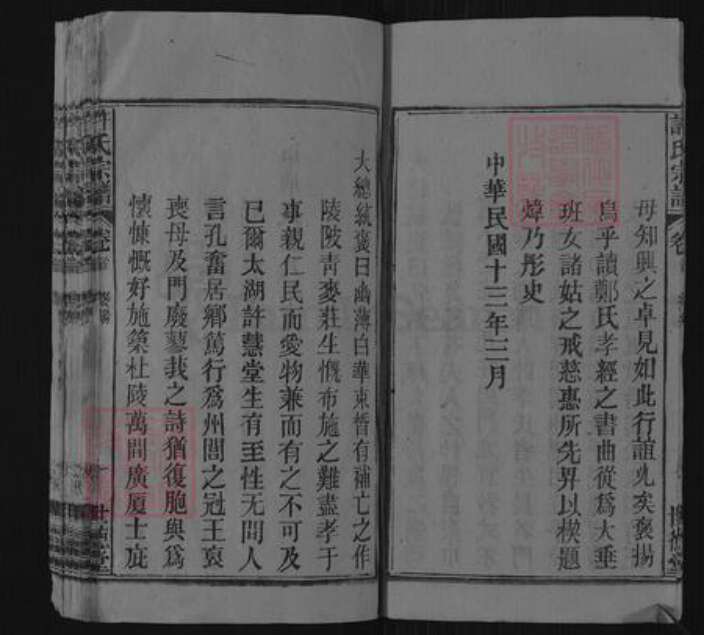 許氏宗譜
卷首
母知興之卓見如此行誼允矣褒揚
烏乎讀鄭氏孝經之書曲從為大垂
班女諸姑之戒慈惠所先畀以楔題
煒乃彤史
中華民國十三年三月
大總統褒曰幽薄白華束皙有補亡之作
陵陂青麥莊生慨布施之難盡孝于
事親仁民而愛物兼而有之不可及
已爾太湖許慧堂生有至性无間人
言孔奮居鄉篤行為州閭之冠王裒
喪母及門廢蓼莪之詩猶復胞與為
懷慷慨好施築杜陵萬間廣厦士庇
許氏宗譜
卷首